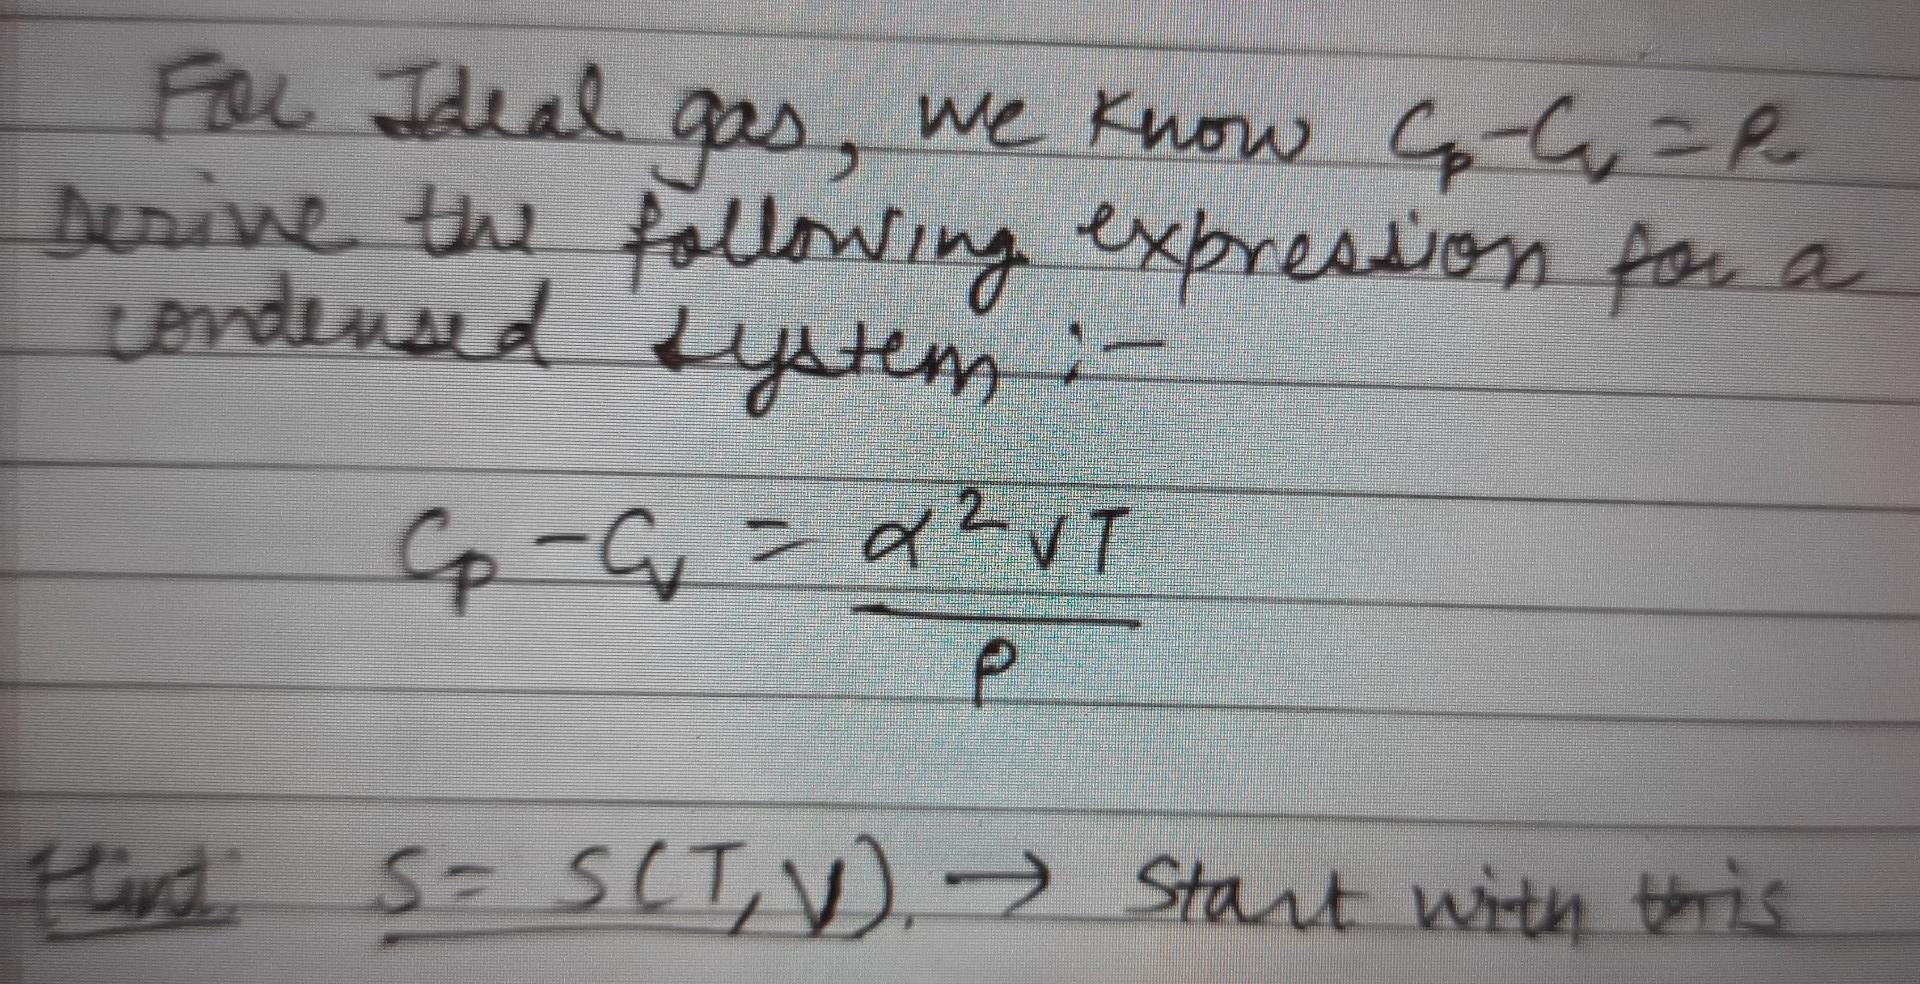 For Ideal gas, we know Cp-Cv = R
Derive the following expression for a
condensed system :-
Cp - Cv = α²VT
β
Hint: S = S(T,V). → Start with this